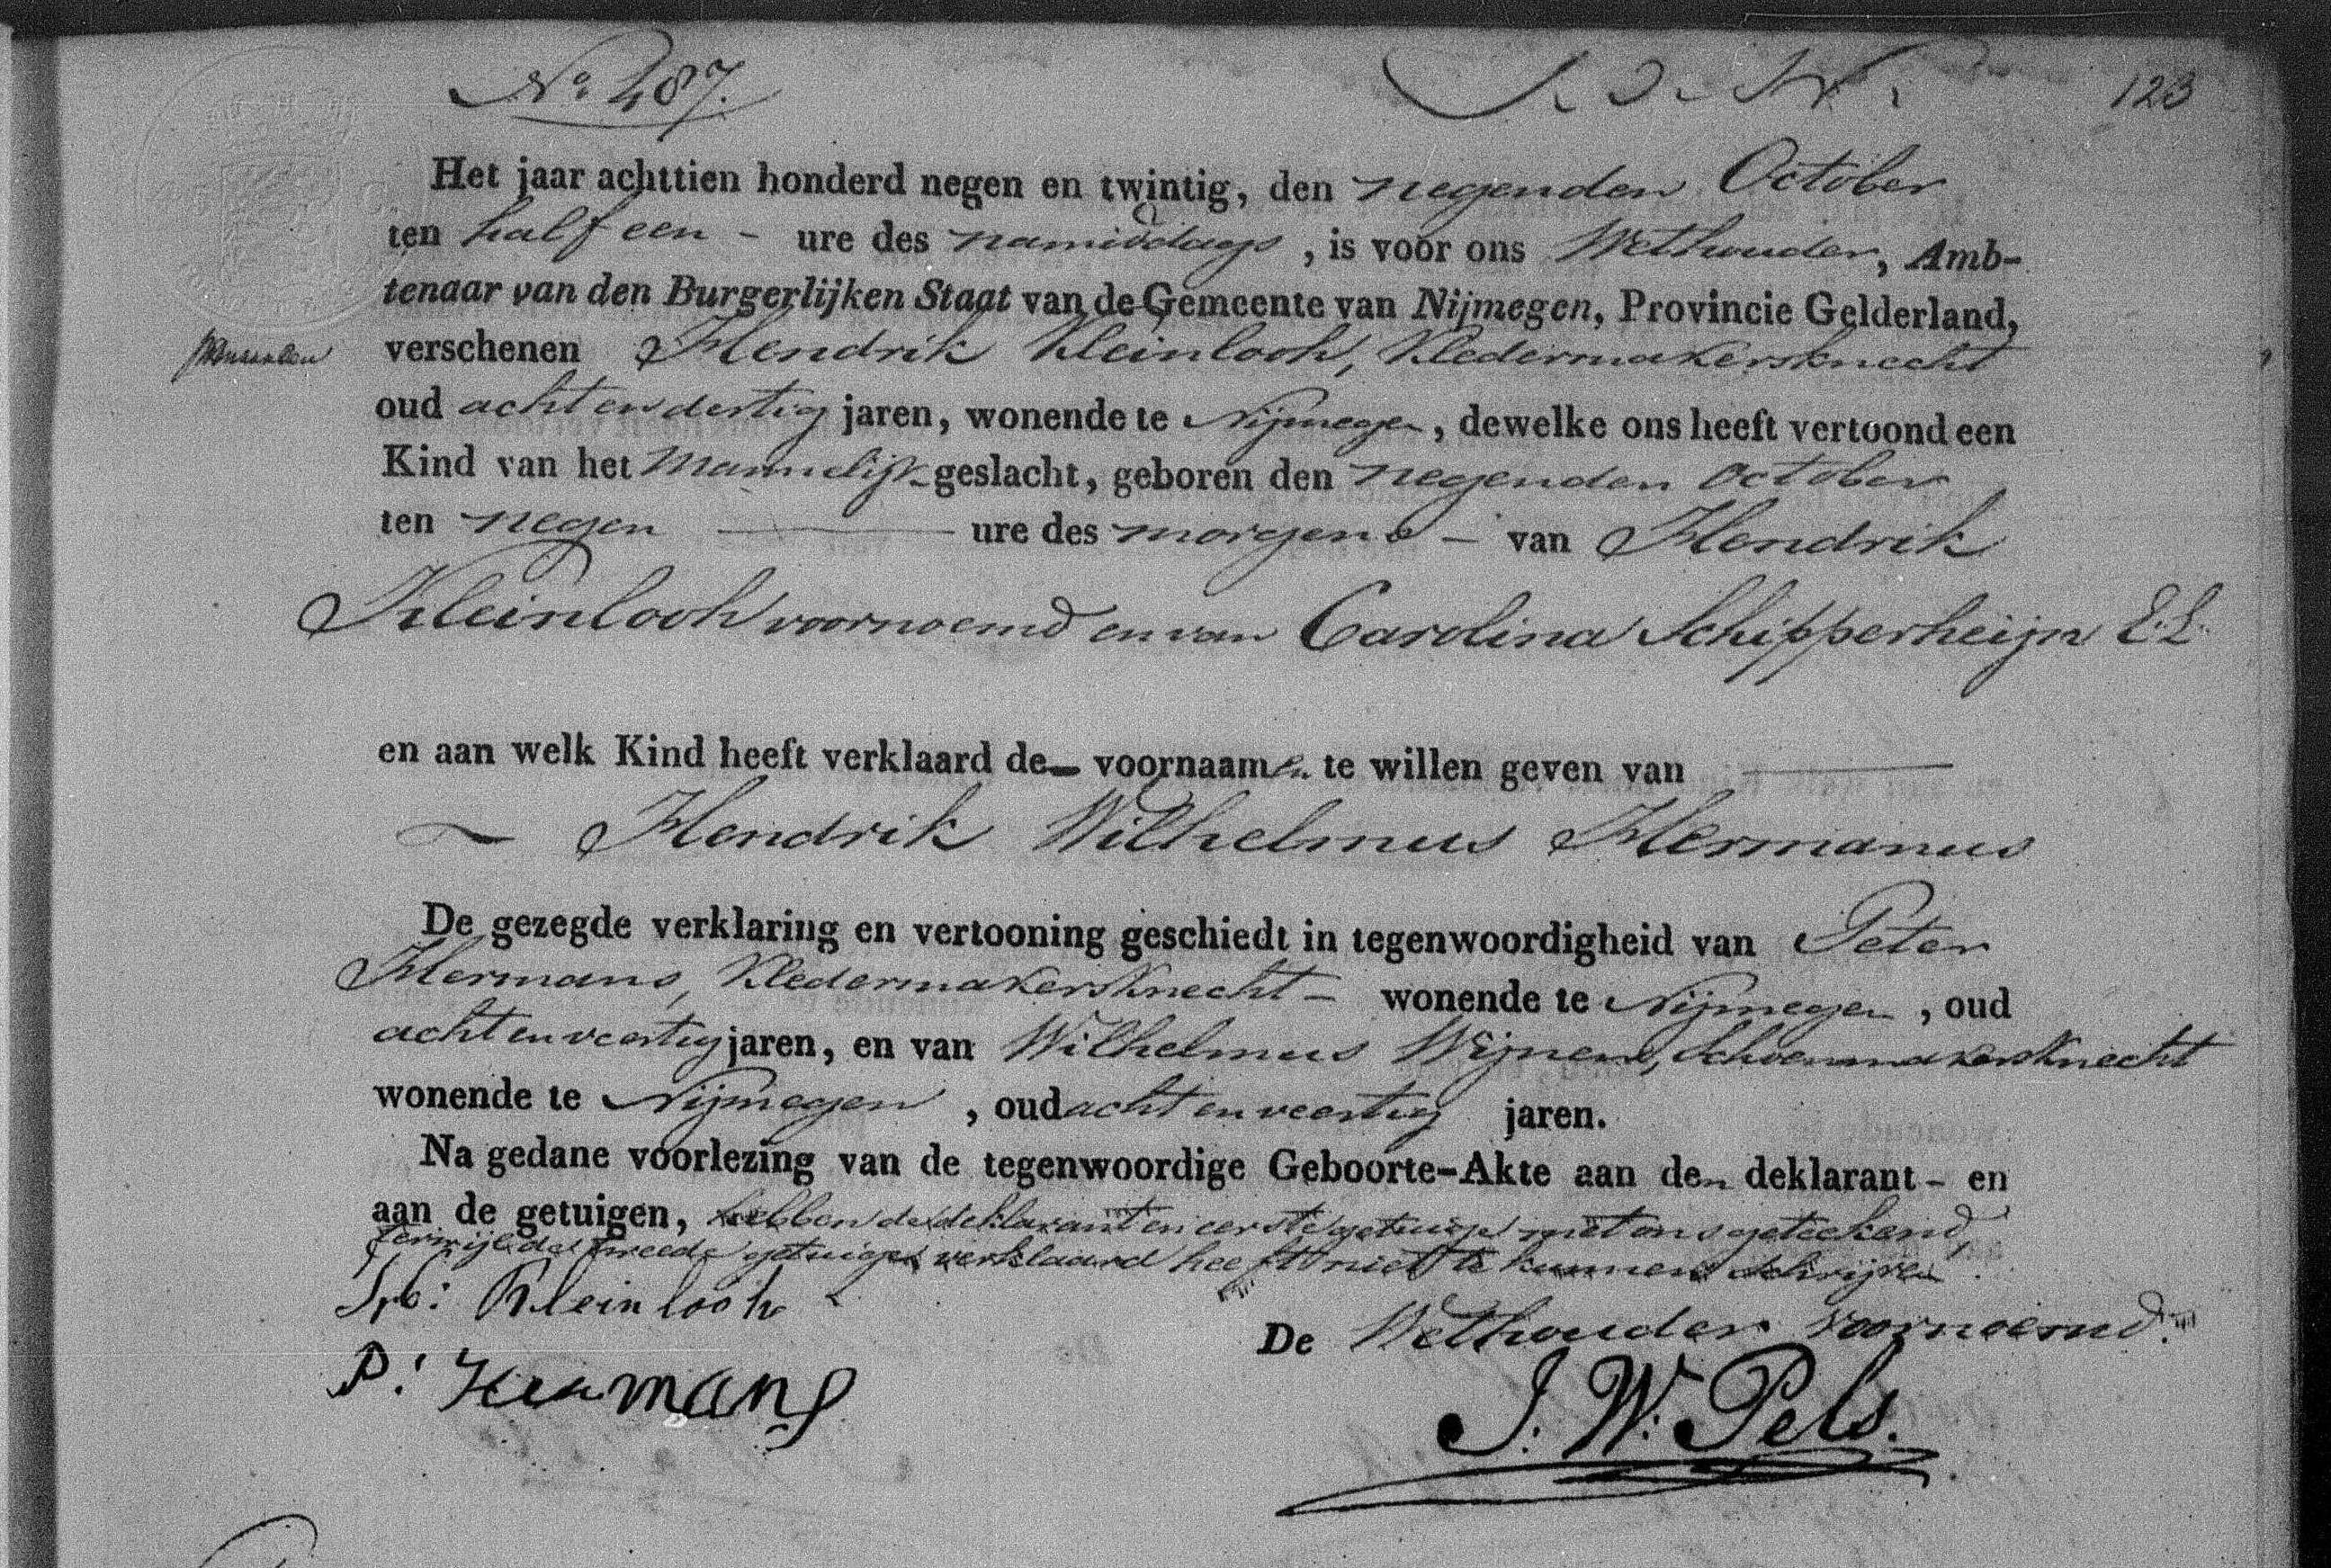 No 487.
123
Het jaar achttien honderd negen en twintig, den negenden October
ten half een - ure des namiddags, is voor ons Wethouder, Amb-
tenaar van den Burgerlijken Staat van de Gemeente van Nijmegen, Provincie Gelderland,
verschenen Hendrik Kleinlooh, Kledermakersknecht
oud acht en dertig jaren, wonende te Nijmegen, dewelke ons heeft vertoond een
Kind van het Mannelijk geslacht, geboren den negenden October
ten negen — ure des morgens - van Hendrik
Kleinlooh voornoemd en van Carolina Schipperheijn E.L.
en aan welk Kind heeft verklaard de— voornaamen te willen geven van —
— Hendrik Wilhelmus Hermanus
De gezegde verklaring en vertooning geschiedt in tegenwoordigheid van Peter
Hermans, Kledermakersknecht - wonende te Nijmegen, oud
acht en veertig jaren, en van Wilhelmus Wijnen, Schoenmakersknecht
wonende te Nijmegen, oud acht en veertig jaren.
Na gedane voorlezing van de tegenwoordige Geboorte-Akte aan den deklarant - en
aan de getuigen, hebben de deklarant en eerste getuige met ons geteekend,
terwijl de tweede getuige verklaard heeft niet te kunnen schrijven.
Kleinlooh
De Wethouder voornoemd.
P: Hermans
J. W. Pels.